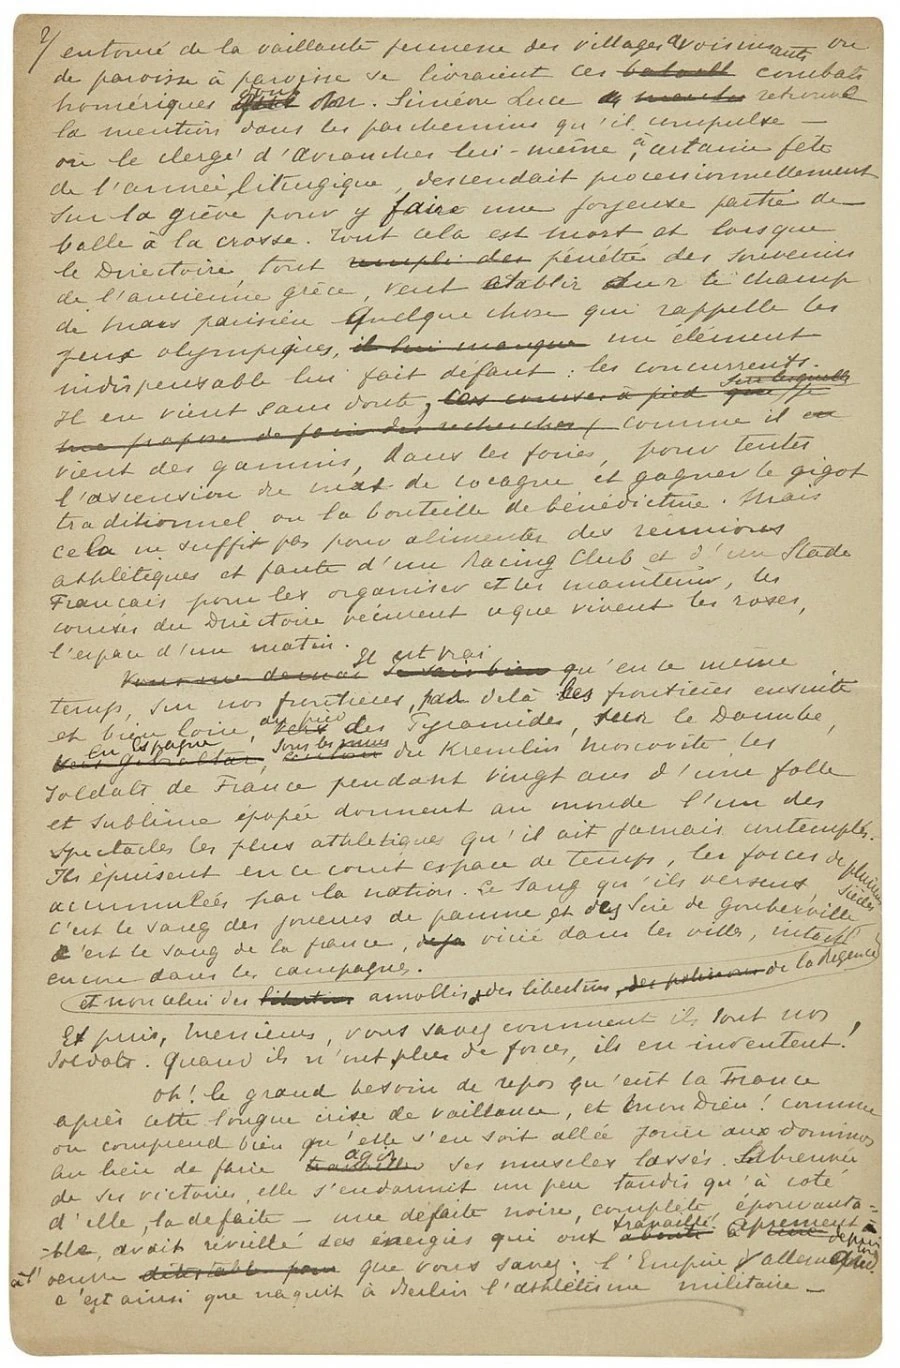 2/
entouré de la vaillante jeunesse des villages avoisinants ou
de paroisse à paroisse se livraient ces combats
homériques dont Mr. Siméon Luce retrouve
la mention dans les parchemins qu'il compulse —
où le clergé d'Avranches lui-même, à certaine fête
de l'année liturgique, descendait processionnellement
sur la grève pour y faire une joyeuse partie de
balle à la crosse. Tout cela est mort et lorsque
le Directoire, tout rempli des pénétré des souvenirs
de l'ancienne grèce, veut établir sur le champ
de mars parisien quelque chose qui rappelle les
jeux olympiques, il lui manque un élément
indispensable lui fait défaut : les concurrents.
Il en vient sans doute, ces courses à pied que sur lesquelles je
me propose de faire des recherches, comme il en
vient des gamins, dans les foires, pour tenter
l'ascension du mat de cocagne et gagner le gigot
traditionnel ou la bouteille de bénédictine. Mais
cela ne suffit pas pour alimenter des reunions
athlétiques et faute d'un Racing Club et d'un Stade
Français pour les organiser et les maintenir, les
courses du Directoire vécurent ce que vivent les roses,
l'espace d'un matin.
Il est vrai
je sais bien qu'en ce même
temps, sur nos frontières, par delà les frontières ensuite
et bien loin, au pied vers des Pyramides, sur le Danube,
en Espagne sous les murs
vers Gibraltar, autour du Kremlin moscovite les
soldats de France pendant vingt ans d'une folle
et sublime épopée donnent au monde l'un des
spectacles les plus athlétiques qu'il ait jamais contemplés.
Ils épuisent en ce court espace de temps, les forces de plusieurs siècles
accumulées par la nation. Le sang qu'ils versent,
c'est le sang des joueurs de paume et des Sire de Gouberville
c'est le sang de la france, déjà vicié dans les villes, intact
encore dans les campagnes.
et non celui des libertins amollis, des libertins, des polissons de la Régence
Et puis, Messieurs, vous savez comment ils sont nos
soldats. Quand ils n'ont plus de forces, ils en inventent !
Oh ! le grand besoin de repos qu'eut la France
après cette longue crise de vaillance, et mon Dieu ! comme
on comprend bien qu'elle s'en soit allée jouer aux dominos
au lieu de faire travailler agir ses muscles lassés. Sabreuve
de ses victoires, elle s'endormit un peu tandis qu'à coté
d'elle, la defaite — une defaite noire, complète épouvanta=
=ble, avait réveillé des énergies qui ont abouti travaillé âprement depuis
à l'oeuvre détestable pour que vous savez : l'Empire d'allemagne.
c'est ainsi que naquit à Berlin l'athlétisme militaire —